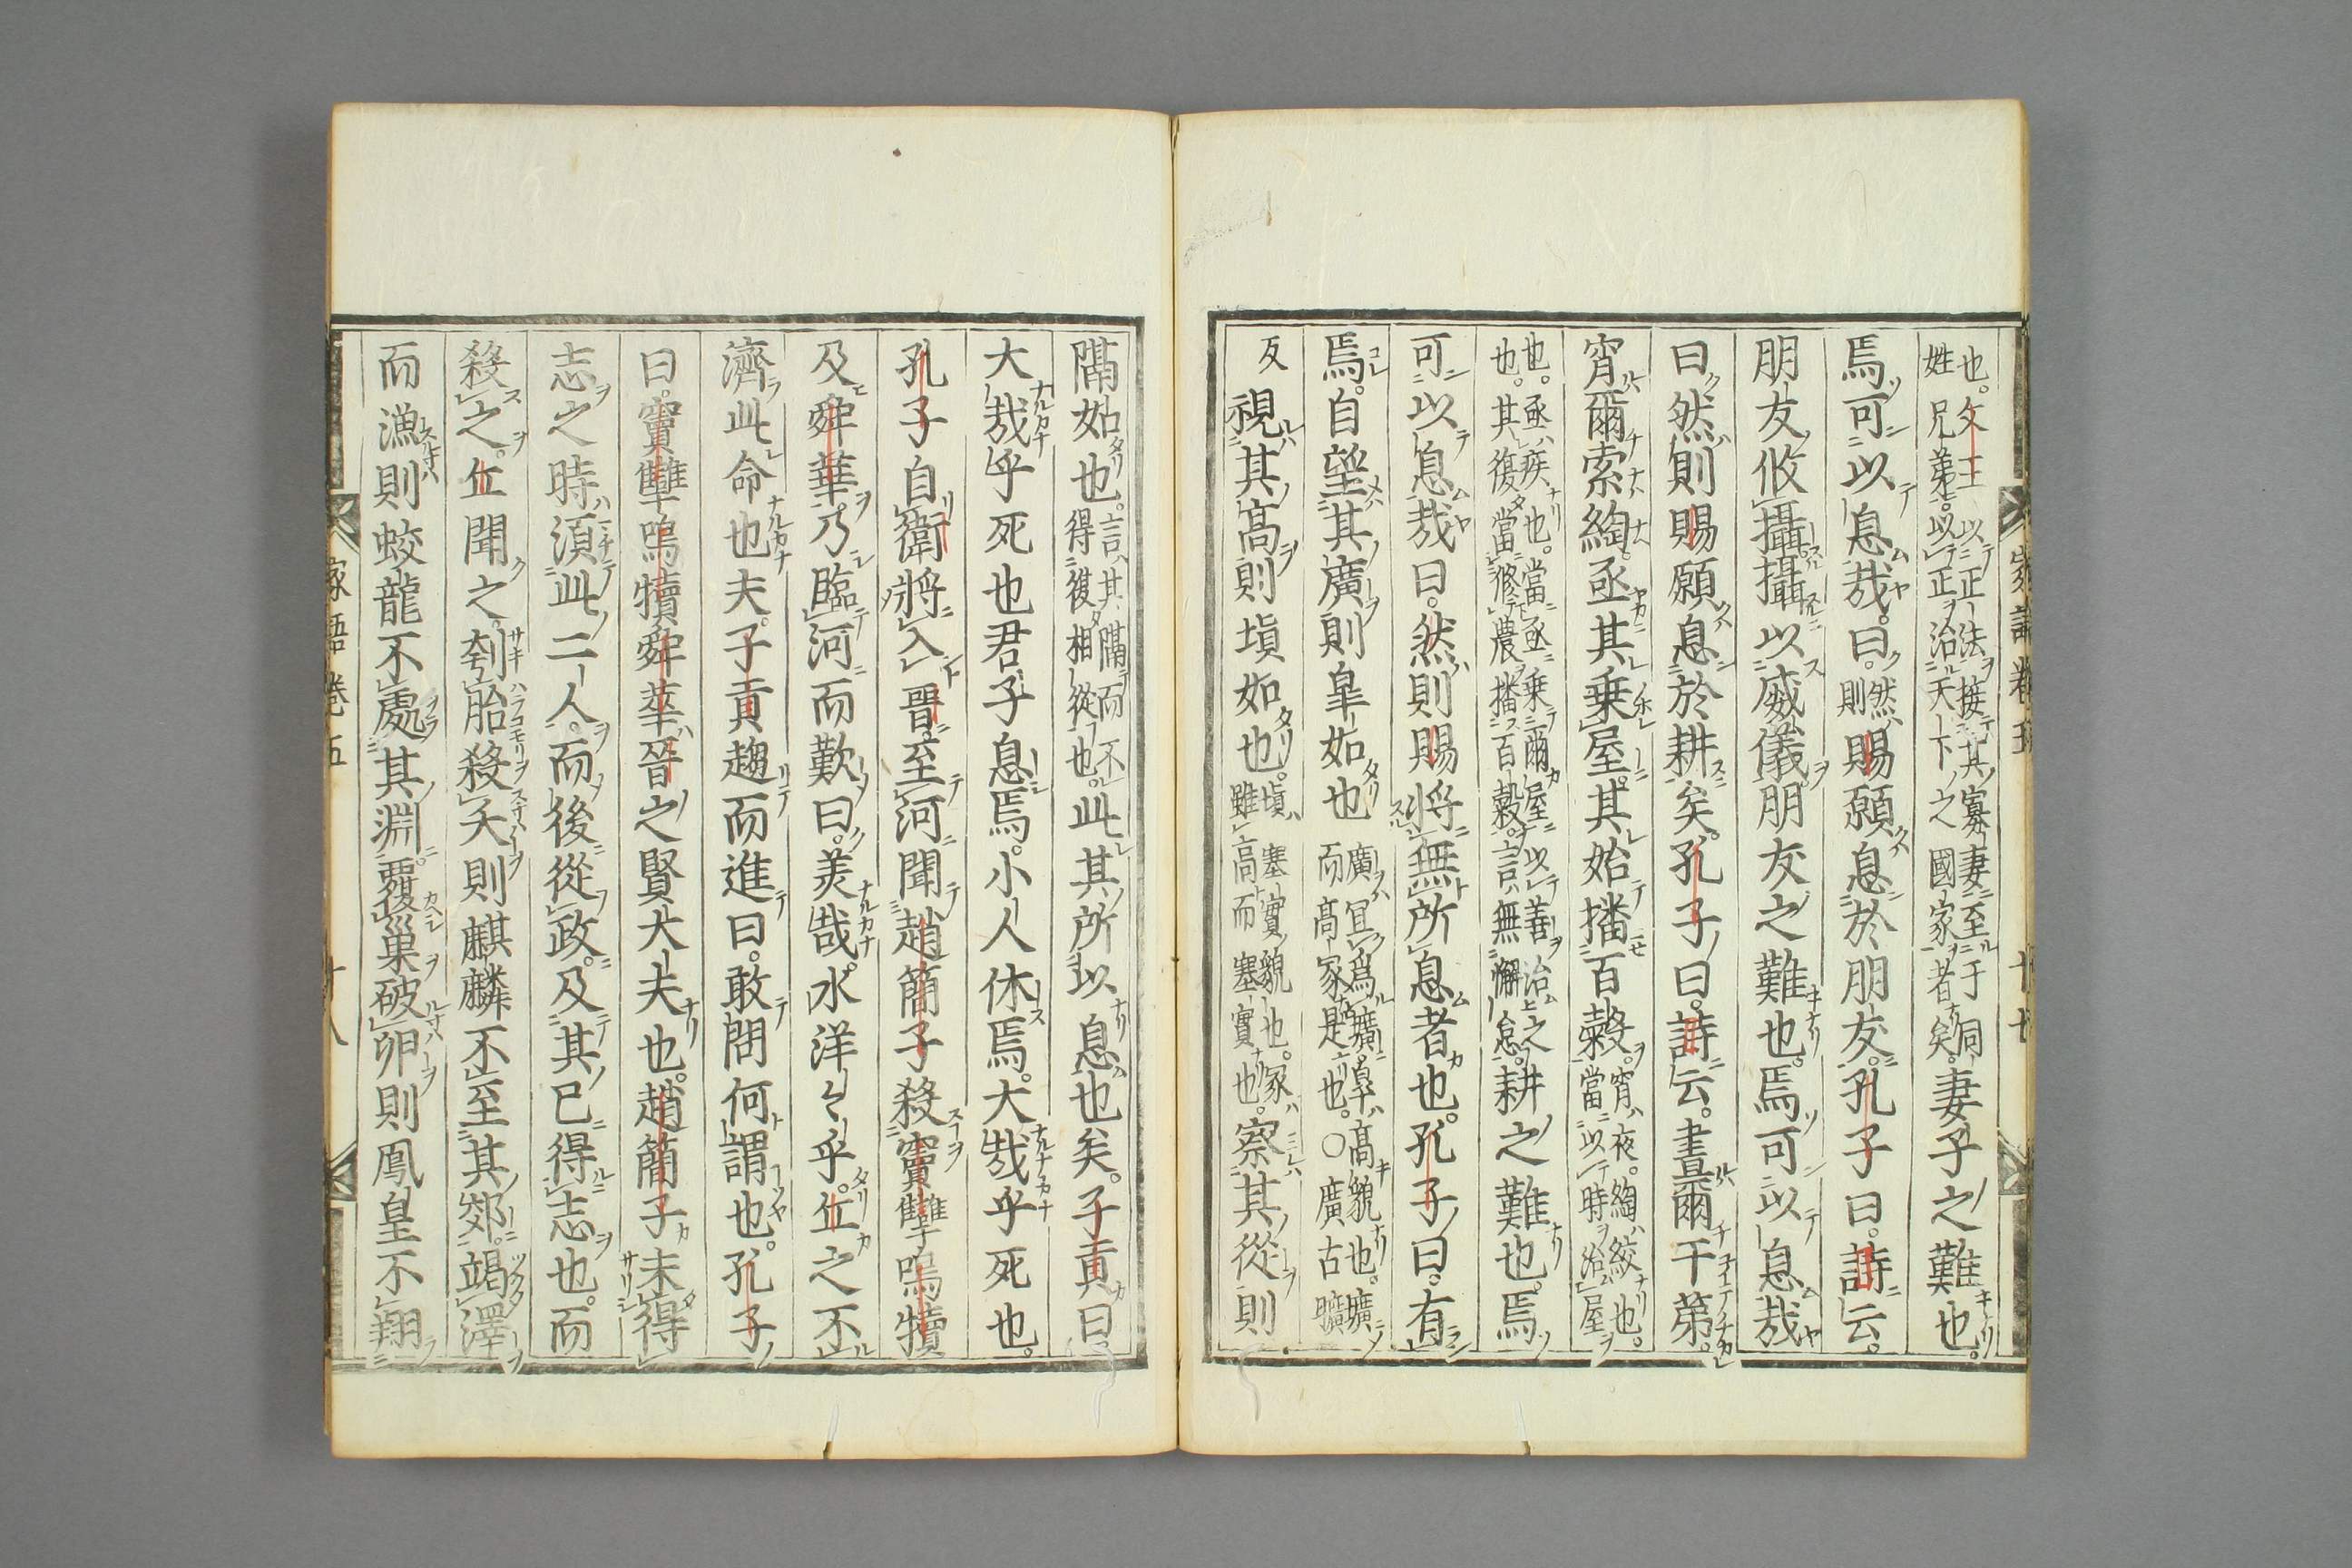 也。文王以正法接其寡妻至于同
姓兄弟。以正治天下之國家者矣。妻子之難也。
焉可以息哉。曰。然則賜願息於朋友。孔子曰。詩云。
朋友攸攝攝以威儀朋友之難也。焉可以息哉
曰然則賜願息於耕矣。孔子曰。詩云。晝爾于茅。
宵爾索綯亟其乗屋。其始播百穀。宵夜。綯絞也。當以時治屋
也。亟疾也。當亟乗爾屋以善治之也。其復當修農播百穀。言無懈怠。耕之難也。焉
可以息哉曰。然則賜將無所息者也。孔子曰。有
焉。自望其廣則睾如也廣宜爲壙睾高貌也。壙而高冢是也。○廣古曠
反視其高則塡如也。塡塞實貌也。冢雖高而塞實也。察其從則
隔如也。言其隔而不得復相從也。此其所以息也矣。子貢曰
大哉乎死也君子息焉。小人休焉。大哉乎死也。
孔子自衛將入晉。至河聞趙簡子殺竇犨鳴犢
及舜華。乃臨河而歎曰。美哉。水洋々乎。丘之不
濟此命也夫。子貢趨而進曰。敢問何謂也。孔子
曰。竇犨鳴犢舜華晉之賢大夫也。趙簡子未得
志之時須此二人。而後從政。及其已得志也。而
殺之。丘聞之。刳胎殺夭則麒麟不至其郊。竭澤
而漁則蛟龍不處其淵。覆巢破卵則鳳皇不翔
家語卷五 十八